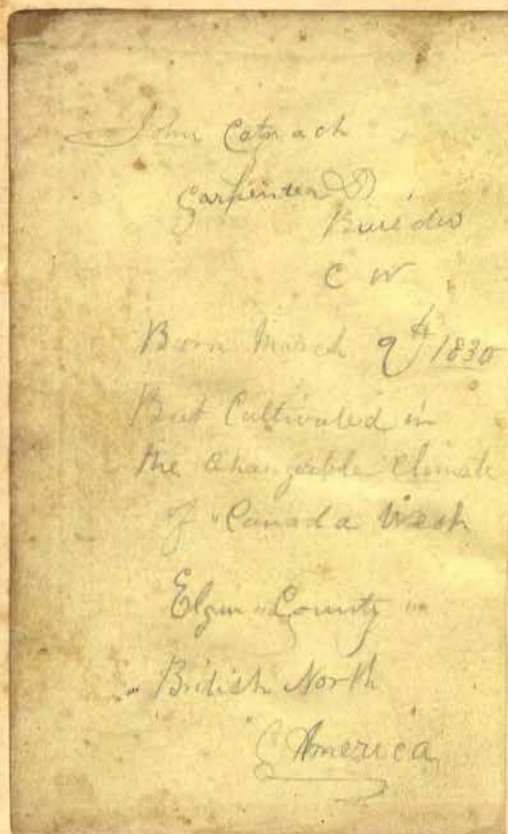 John Catnach
Carpenter &
Builder
C W
Born March 9th 1830
But Cultivated in
the Changeable Climate
of "Canada West
Elgin "County "
" British North
America